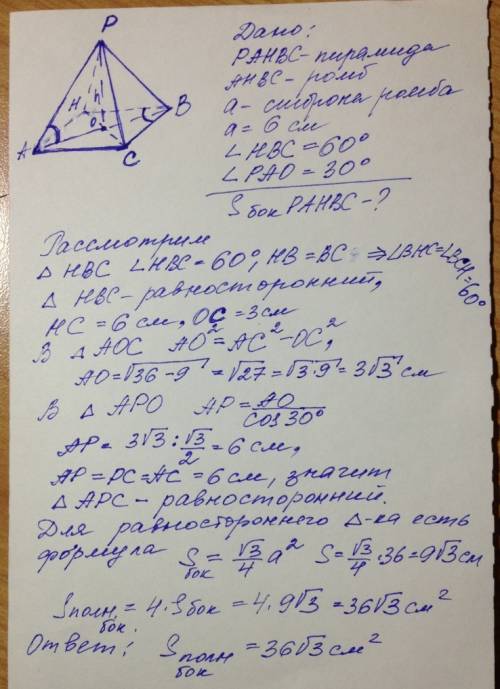 P
H
h
B
O
A
C
Дано:
PAHBC - пирамида
AHBC - ромб
a - сторона ромба
a = 6 см
∠HBC = 60°
∠PAO = 30°
Sбок PAHBC - ?
Рассмотрим
△ HBC ∠HBC = 60°, HB = BC ⇒ ∠BHC = ∠BCH = 60°
△ HBC - равносторонний,
HC = 6 см, OC = 3 см
В △ AOC AO² = AC² - OC²,
AO = √36 - 9 = √27 = √3·9 = 3√3 см
В △ APO AP = AO / cos 30°
AP = 3√3 : √3/2 = 6 см,
AP = PC = AC = 6 см, значит
△ APC - равносторонний.
Для равностороннего △-ка есть
формула Sбок = √3/4 a² S = √3/4 · 36 = 9√3 см
Sполн. бок. = 4 · Sбок = 4 · 9√3 = 36√3 см²
Ответ: Sполн бок = 36√3 см²